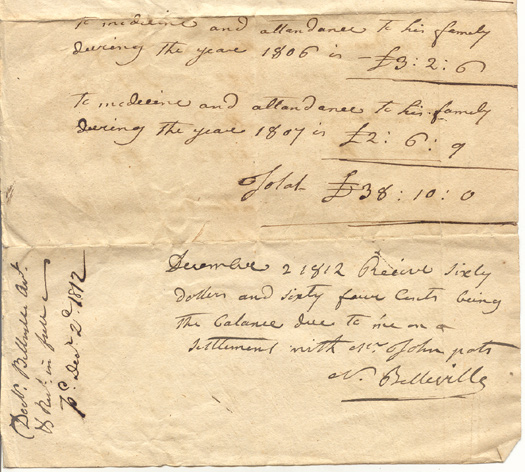 to medicine and attendance to his family
during the year 1806 is £3:2:6
to medicine and attendance to his family
during the year 1807 is £2:6:9
Total £38:10:0
December 2 1812 Receive sixty
dollers and sixty four Cents being
the balance due to me on a
settlement with Mr John pots
N. Belleville
Doctr. Bellville Act.
& Rect. in full
Decr 2d. 1812